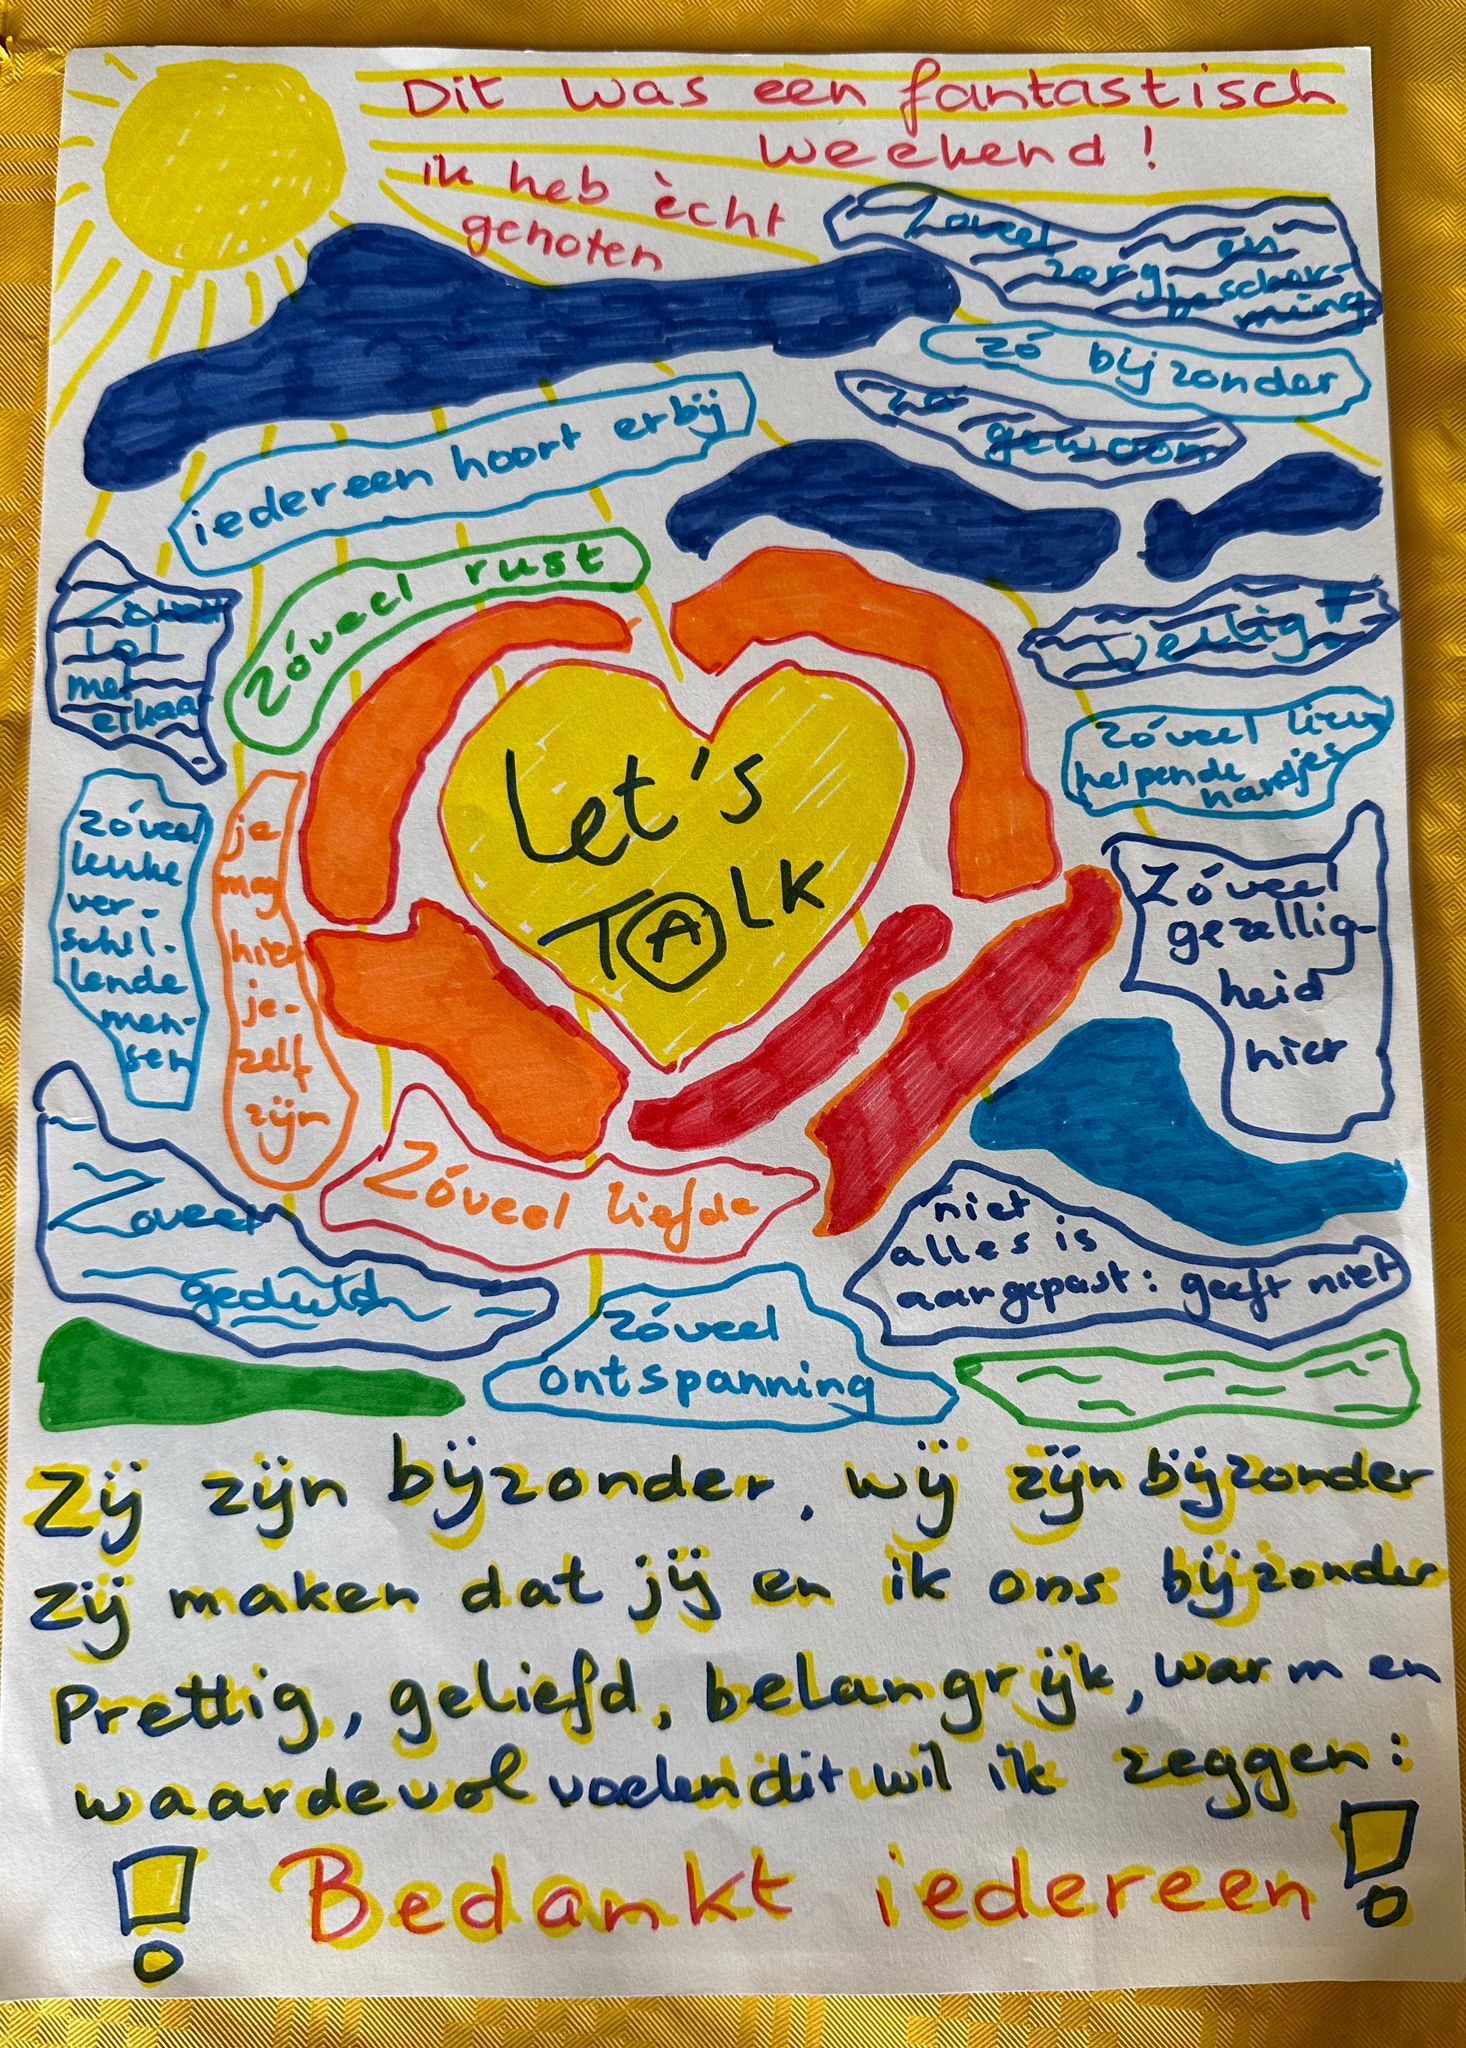 Dit was een fantastisch
weekend!
ik heb ècht
genoten
zoveel
zorg en
bescher-
ming
zó bijzonder
zó
gewoon
iedereen hoort erbij
zóveel rust
Zoveel
lol
met
elkaar
Veilig!
zóveel lieve
helpende
handjes
Let's
TALK
zóveel
leuke
ver-
schil-
lende
men-
sen
je
mag
hier
je-
zelf
zijn
Zóveel
gezellig-
heid
hier
Zoveel
geduld
Zóveel liefde
niet
alles is
aangepast: geeft niet
zóveel
ontspanning
Zij zijn bijzonder, wij zijn bijzonder
zij maken dat jij en ik ons bijzonder
Prettig, geliefd, belangrijk, warm en
waardevol voelen dit wil ik zeggen:
! Bedankt iedereen !